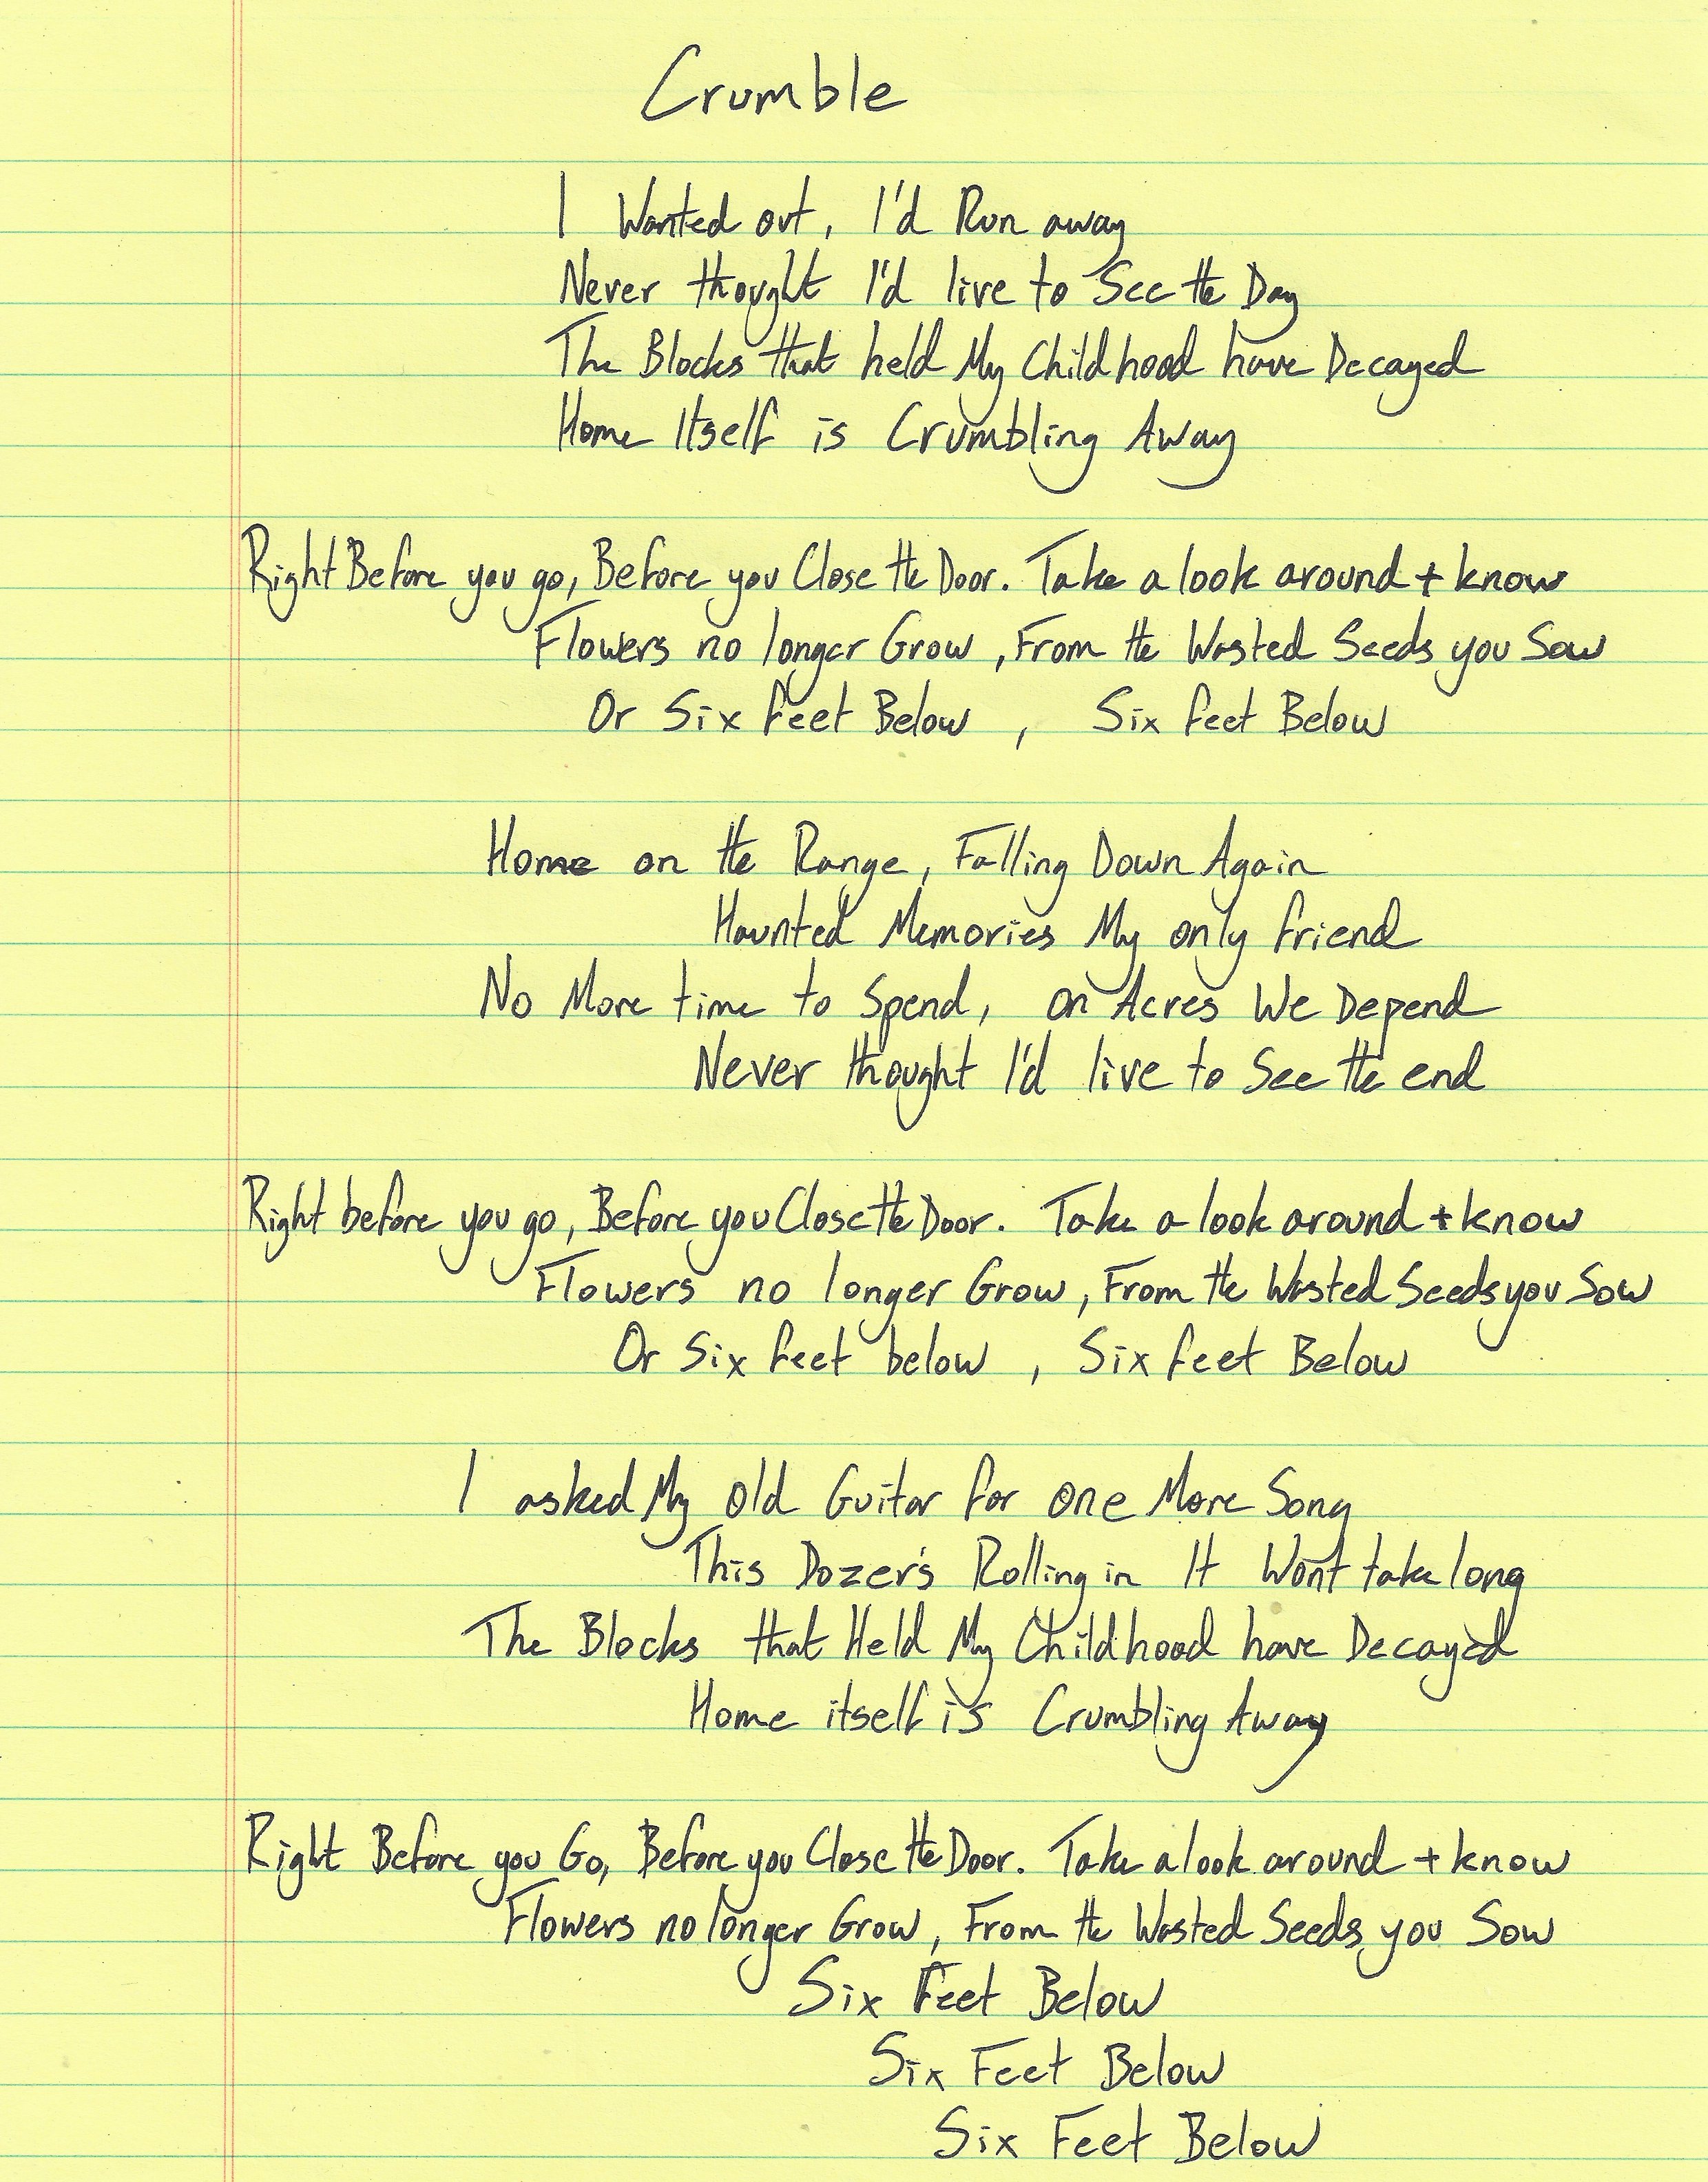 Crumble
I Wanted out, I'd Run away
Never thought I'd live to See the Day
The Blocks that held My Childhood have Decayed
Home Itself is Crumbling Away
Right Before you go, Before you Close the Door. Take a look around + know
Flowers no longer Grow, From the Wasted Seeds you Sow
Or Six feet Below, Six feet Below
Home on the Range, Falling Down Again
Haunted Memories My only friend
No More time to Spend, on Acres We Depend
Never thought I'd live to See the end
Right before you go, Before you Close the Door. Take a look around + know
Flowers no longer Grow, From the Wasted Seeds you Sow
Or Six feet below, Six feet Below
I asked My Old Guitar for one More Song
This Dozer's Rolling in It Won't take long
The Blocks that Held My Childhood have Decayed
Home itself is Crumbling Away
Right Before you Go, Before you Close the Door. Take a look around + know
Flowers no longer Grow, From the Wasted Seeds you Sow
Six Feet Below
Six Feet Below
Six Feet Below